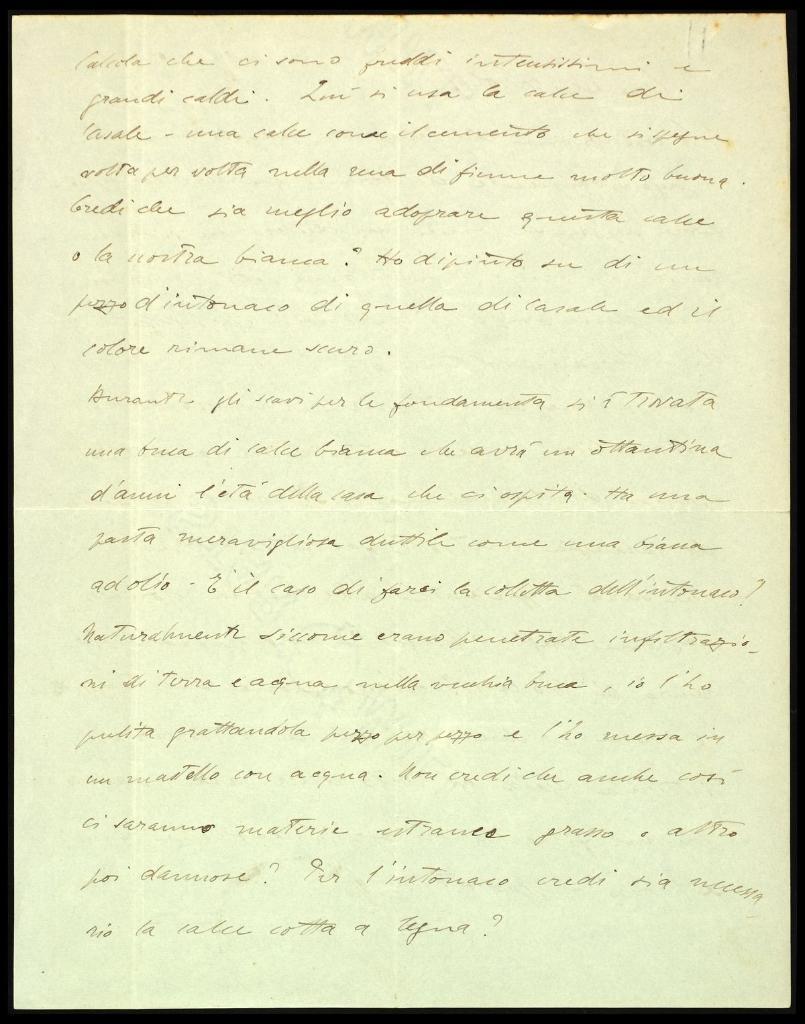 Calcola che ci sono freddi intensissimi e
grandi caldi. Quì si usa la calce di
Casale - una calce come il cemento che si spegne
volta per volta nella rena di fiume molto buona.
Credi che sia meglio adoprare questa calce
o la nostra bianca? Ho dipinto su di un
pezzo d'intonaco di quella di Casale ed il
colore rimane scuro.
Durante gli scavi per le fondamenta si è trovata
una buca di calce bianca che avrà un ottantina
d'anni l'età della casa che ci ospita. Ha una
pasta meravigliosa duttile come una biacca
ad olio - È il caso di farci la colletta dell'intonaco?
Naturalmente siccome erano penetrate infiltrazio-
ni di terra e acqua nella vecchia buca, io l'ho
pulita grattandola pezzo per pezzo e l'ho messa in
un mastello con acqua. Non credi che anche così
ci saranno materie estranee grasso o altro
poi dannose? Per l'intonaco credi sia necessa-
rio la calce cotta a legna?